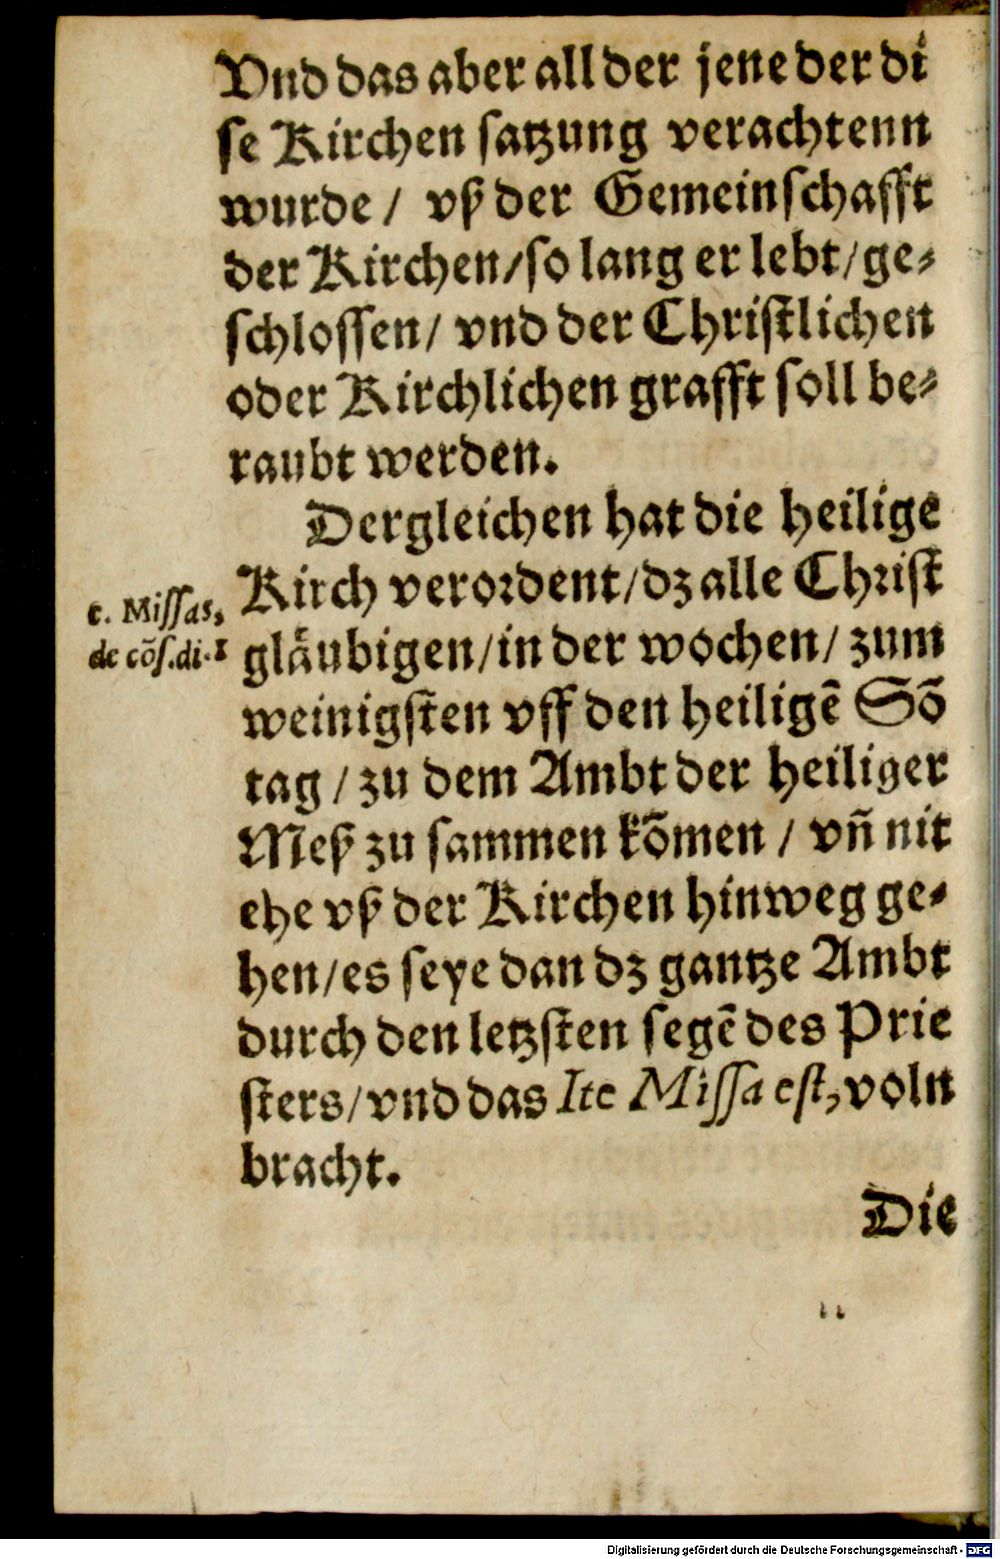 Vnd das aber all der jene der di
se Kirchen satzung verachtenn
wurde / vß der Gemeinschafft
der Kirchen/so lang er lebt/ge⸗
schlossen/ vnd der Christlichen
oder Kirchlichen grafft soll be⸗
raubt werden.
Dergleichen hat die heilige
Kirch verordent/dz alle Christ
gläubigen/in der wochen/ zum
weinigsten vff den heiligẽ Sõ
tag / zu dem Ambt der heiliger
Meß zu sammen kõmen / vñ nit
ehe vß der Kirchen hinweg ge⸗
hen/es seye dan dz gantze Ambt
durch den letzsten segẽ des Prie
sters/vnd das Ite Missa est, voln
bracht.
c. Missas,
de cõs.di.1
Die
Digitalisierung gefördert durch die Deutsche Forschungsgemeinschaft - DFG